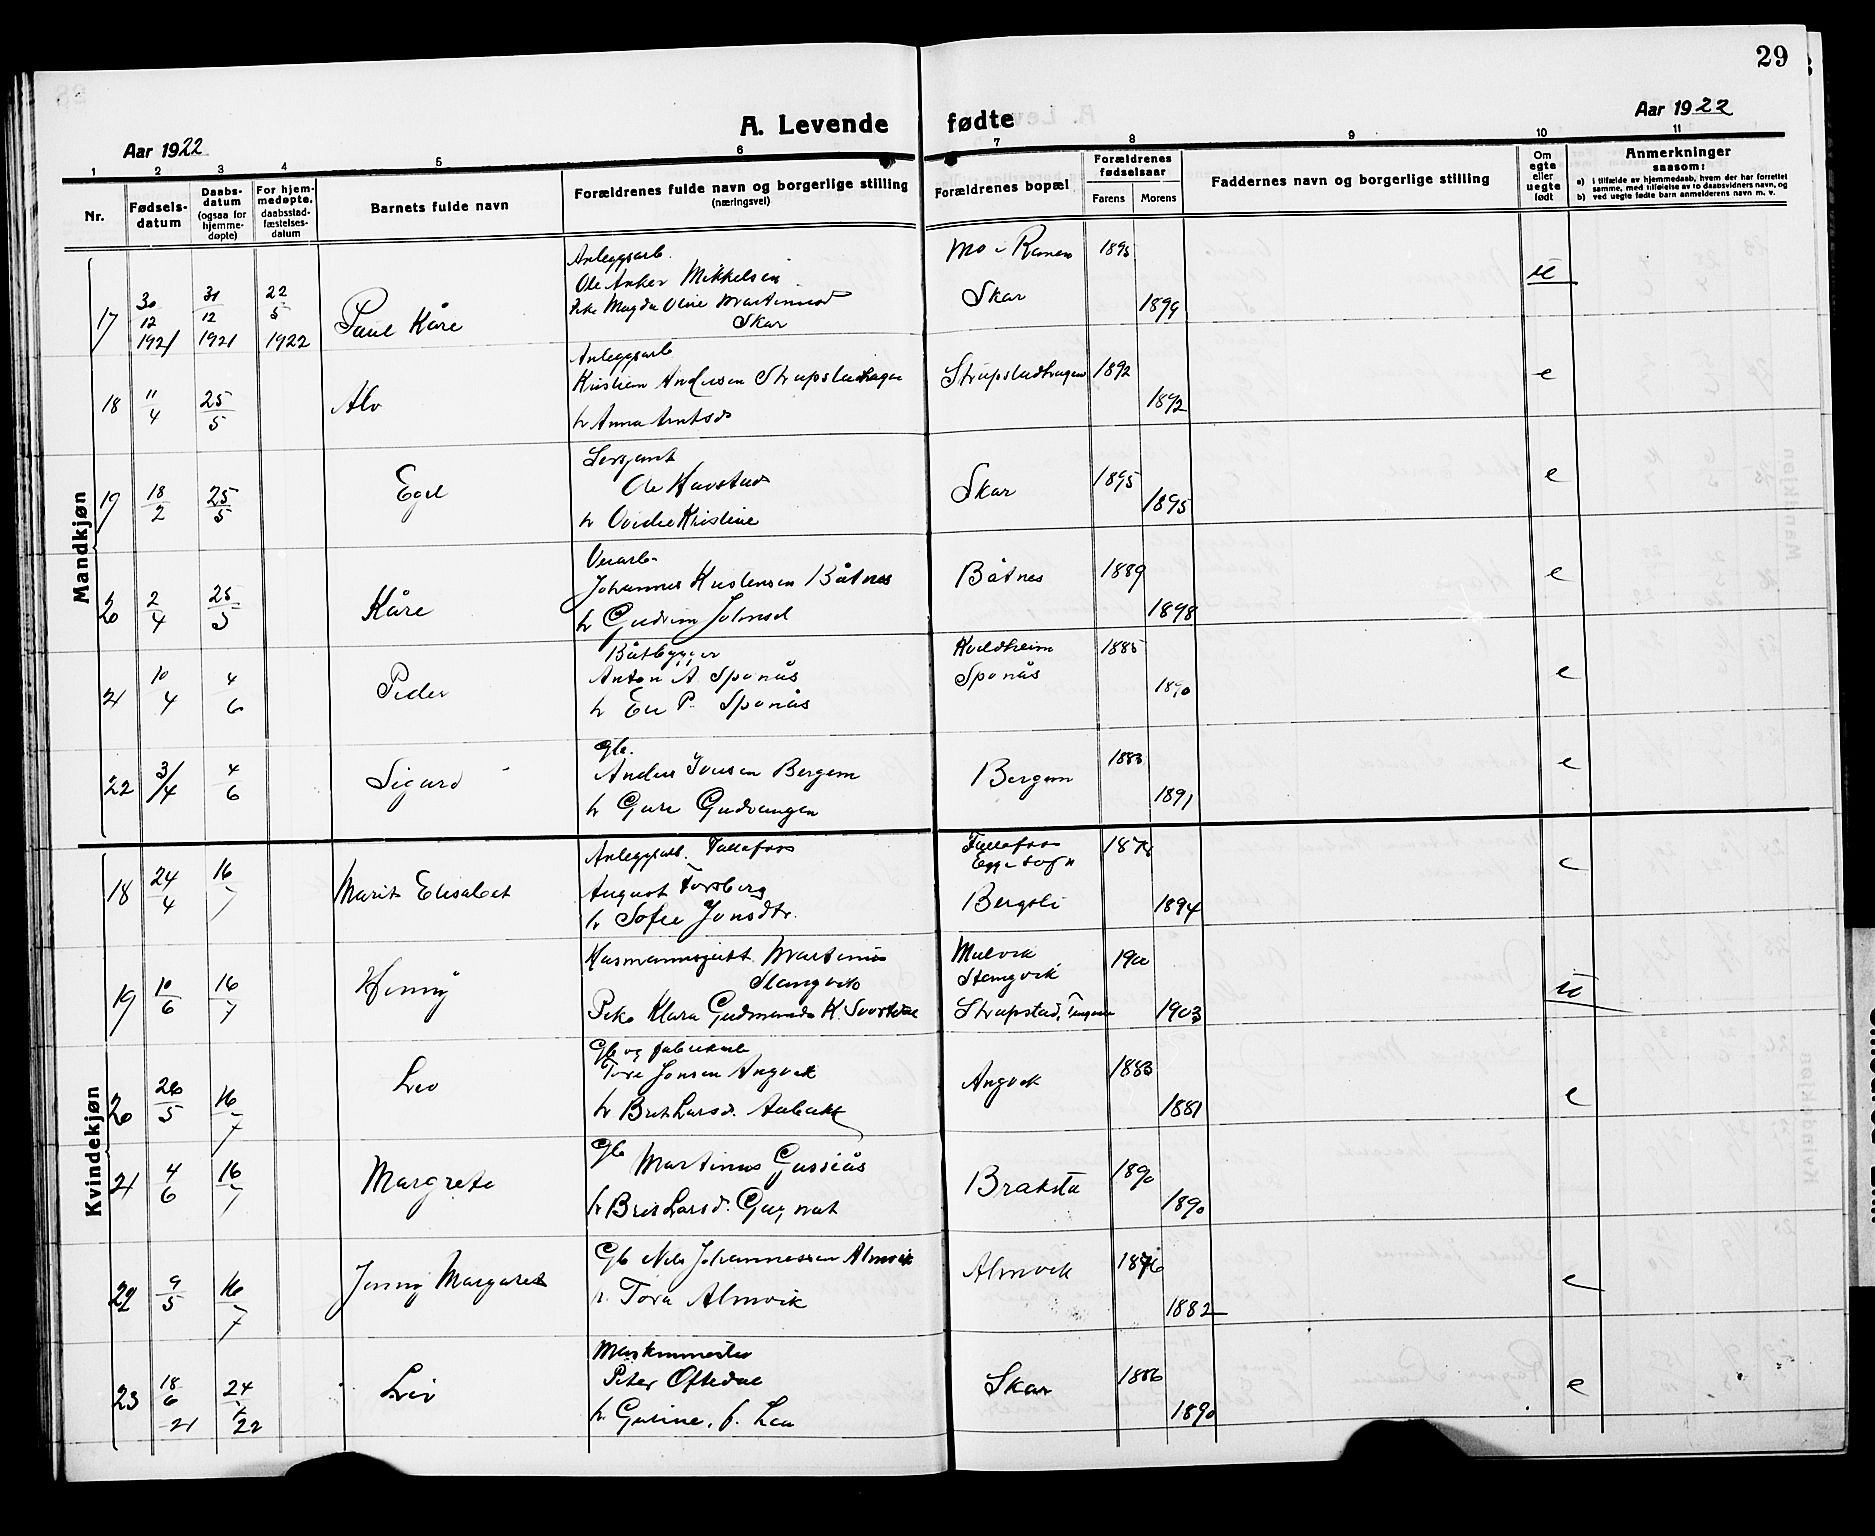 29
A. Levende fødte
Aar 1922
Aar 1922
1 2 3 4 5 6 7 8 9 10 11
Nr.
Fødsels-
datum
Daabs-
datum
(ogsaa for
hjemme-
døpte)
For hjem-
medøpte,
daabsstad-
fæstelses-
datum
Barnets fulde navn
Forældrenes fulde navn og borgerlige stilling
(næringsvei)
Forældrenes bopæl
Forældrenes
fødselsaar
Farens
Morens
Faddernes navn og borgerlige stilling
Om
egte
eller
uegte
født
Anmerkninger
saasom:
a) i tilfælde av hjemmedaab, hvem der har forrettet
samme, med tilføielse av to daabsvidners navn, og
b) ved uegte fødte barn anmelderens navn m. v.
Mandkjøn
Anleggsarb. Mo i Ranen 1895
17 30/12 1921 31/12 1921 22/5 1922 Paul Kåre
Ole Anker Mikkelsen
Pike Magda Oline Martinusd Skar 1899 u
Skar
Anleggsarb
18 11/4 25/5 Alv
Kristian Andersen Strupstadhagen Strupstadhagen 1892 e
h Anna Arntsd 1892
Sersjant
19 18/2 25/5 Egil
Ole Havstad Skar 1895 e
h Ovidie Kristine 1895
Veiarb.
20 2/4 25/5 Kåre
Johannes Kristensen Båtnes Båtnes 1889 e
h Gudrun Johnsd 1898
Båtbygger Kveldheim 1885
21 10/4 4/6 Peder
Anton A Sponås Sponås e
h P. Sponås 1890
Gb.
22 3/4 4/6 Sigurd
Anders Iversen Bergem Bergem 1883 e
h Guri Gudvangen 1891
Kvindekjøn
Anleggsarb. Tallafoss Fallafoss 1878
18 24/4 16/7 Marit Elisabet
Egge sogn e
August Forsberg
h Sofie Jonsdtr. Bergsli 1894
19 10/6 16/7 Henny
Husmannsgutt Martinus Mulvik 190
Stangvik Stangvik u
Pike Klara Gudmundsd Strupstad, 1903
Gb og fabrikarb
20 26/5 16/7 Liv
Tore Jonsen Angvik Angvik 1883 e
h Brit Larsd. 1881
Gb
21 4/6 16/7 Margrete
Martinus Gussiås Braksta 1890
h Brit Larsd. 1890
22 9/5 16/7 Jenny Margaret
Gb Nils Johannessen Almvik Almvik 1876 e
h. Tora Almvik 1882
Maskinmester
23 18/6 21 24/ 22 Liv
Peter Oftedal Skar 1886 e
h. Gurine, f. Lea 1890